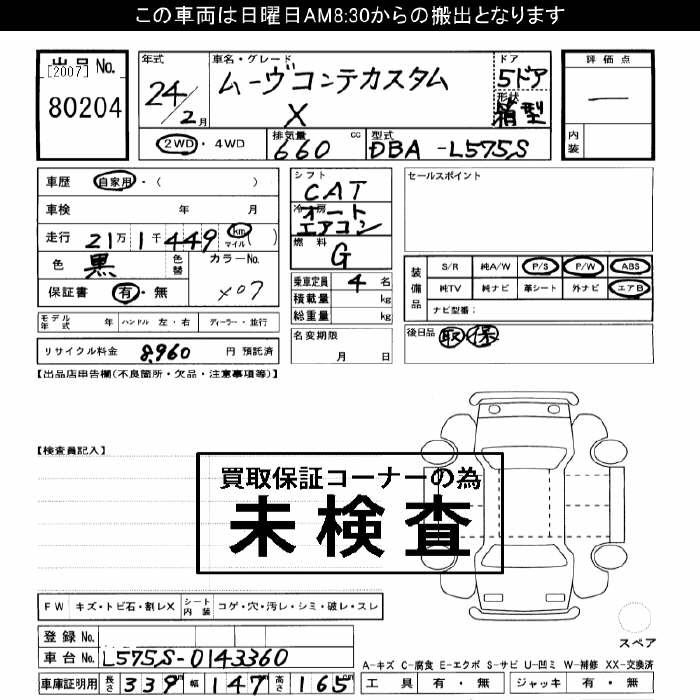 この車両は日曜日AM8:30からの搬出となります
出品No.
[2007]
80204
年式
24/2月
車名・グレード
ムーヴコンテカスタム
X
ドア
5ドア
形状
箱型
評価点
—
内装
2WD・4WD
排気量
660 cc
型式
DBA-L575S
車歴 自家用・( )
車検 年 月
走行 21万1千449 km マイル ( )
色 黒 色替 カラーNo. X07
保証書 有・無
シフト
CAT
冷房
オートエアコン
燃料
G
乗車定員 4 名
積載量 kg
総重量 kg
セールスポイント
装備品
S/R 純A/W P/S P/W ABS
純TV 純ナビ 革シート 外ナビ エアB
ナビ型番:
モデル年式 年 ハンドル 左・右 ディーラー・並行
リサイクル料金 8,960 円 預託済
名変期限
月 日
後日品 取 保
【出品店申告欄(不良箇所・欠品・注意事項等)】
【検査員記入】
買取保証コーナーの為
未検査
FW キズ・トビ石・割レX シート内装 コゲ・穴・汚レ・シミ・破レ・スレ
スペア
登録No.
車台No. L575S-0143360
車庫証明用 長さ 339 幅 147 高さ 165 cm
A-キズ C-腐食 E-エクボ S-サビ U-凹ミ W-補修 XX-交換済
工具 有・無 ジャッキ 有・無